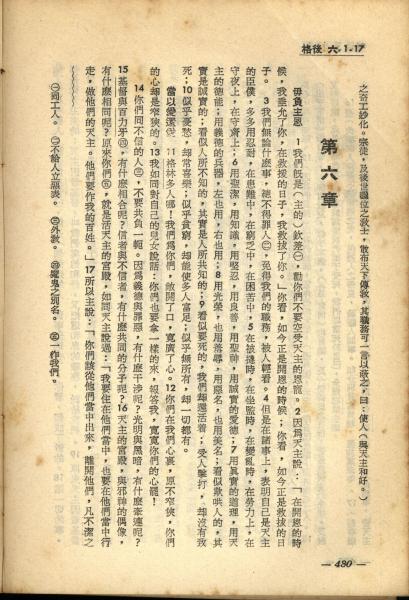 格後 六 1-17
之奇工妙化。宗徒，及後世繼位之教士，散布天下傳教，其職務可一言以蔽之，曰：使人（與天主和好。）
第六章
毋負主恩 1我們旣是（主的）欽差㊀，勸你們不要空受天主的恩寵。2因爲天主說：「在開恩的時
候，我垂允了你，在救援的日子，我救拔了你。」你看，如今正是開恩的時候；你看，如今正是救拔的日
子。3我們無論什麼事，總不得罪人㊁，免得我們的職務，被人輕看。4但是在諸事上，表明自己是天主
的臣僕，多多用忍耐，在患難中，在窮乏中，在困苦中，5在被撻時，在坐監時，在變亂時，在勞力上，在
守夜上，在守齋上；6用聖潔，用知識，用堅忍，用良善，用聖神，用誠實的愛德；7用眞實的道理，用天
主的德能；用義德的兵器，左也用，右也用；8用光榮，也用羞辱，用惡名，也用美名；看似欺哄人的，其
實是誠實的；看似人所不知的，其實是人所共知的；9看似要死的，我們却還活着；受人鞭打，却沒有致
死；10似乎憂愁，却常喜樂；似乎貧窮，却能使多人富足；似乎無所有，却一切都有。
當以愛還愛 11格林多人哪！我們爲你們，敞開了口，寬廣了心。12你們在我們心裏，原不窄狹，你們
的心却是窄狹的。13我如同對自己的兒女說話：你們也要拿一樣的來，報答我，寬寬你們的心罷！
14你們同不信的人㊂，不要共負一軛。因爲義德與罪惡，有什麼干涉呢？光明與黑暗，有什麼牽連呢？
15基督與百力矛㊃，有什麼相合呢？信者與不信者，有什麼共同的分子呢？16天主的宮殿，與邪神的偶像，
有什麼相同呢？原來你們㊄，就是活天主的宮殿，如同天主說過：「我要住在他們當中，也要在他們當中行
走，做他們的天主。他們要作我的百姓。」17所以主說：「你們該從他們當中出來，離開他們，凡不潔之
㊀同工人。 ㊁不給人立惡表。 ㊂外教。 ㊃魔鬼之別名。 ㊄一作我們。
— 430 —